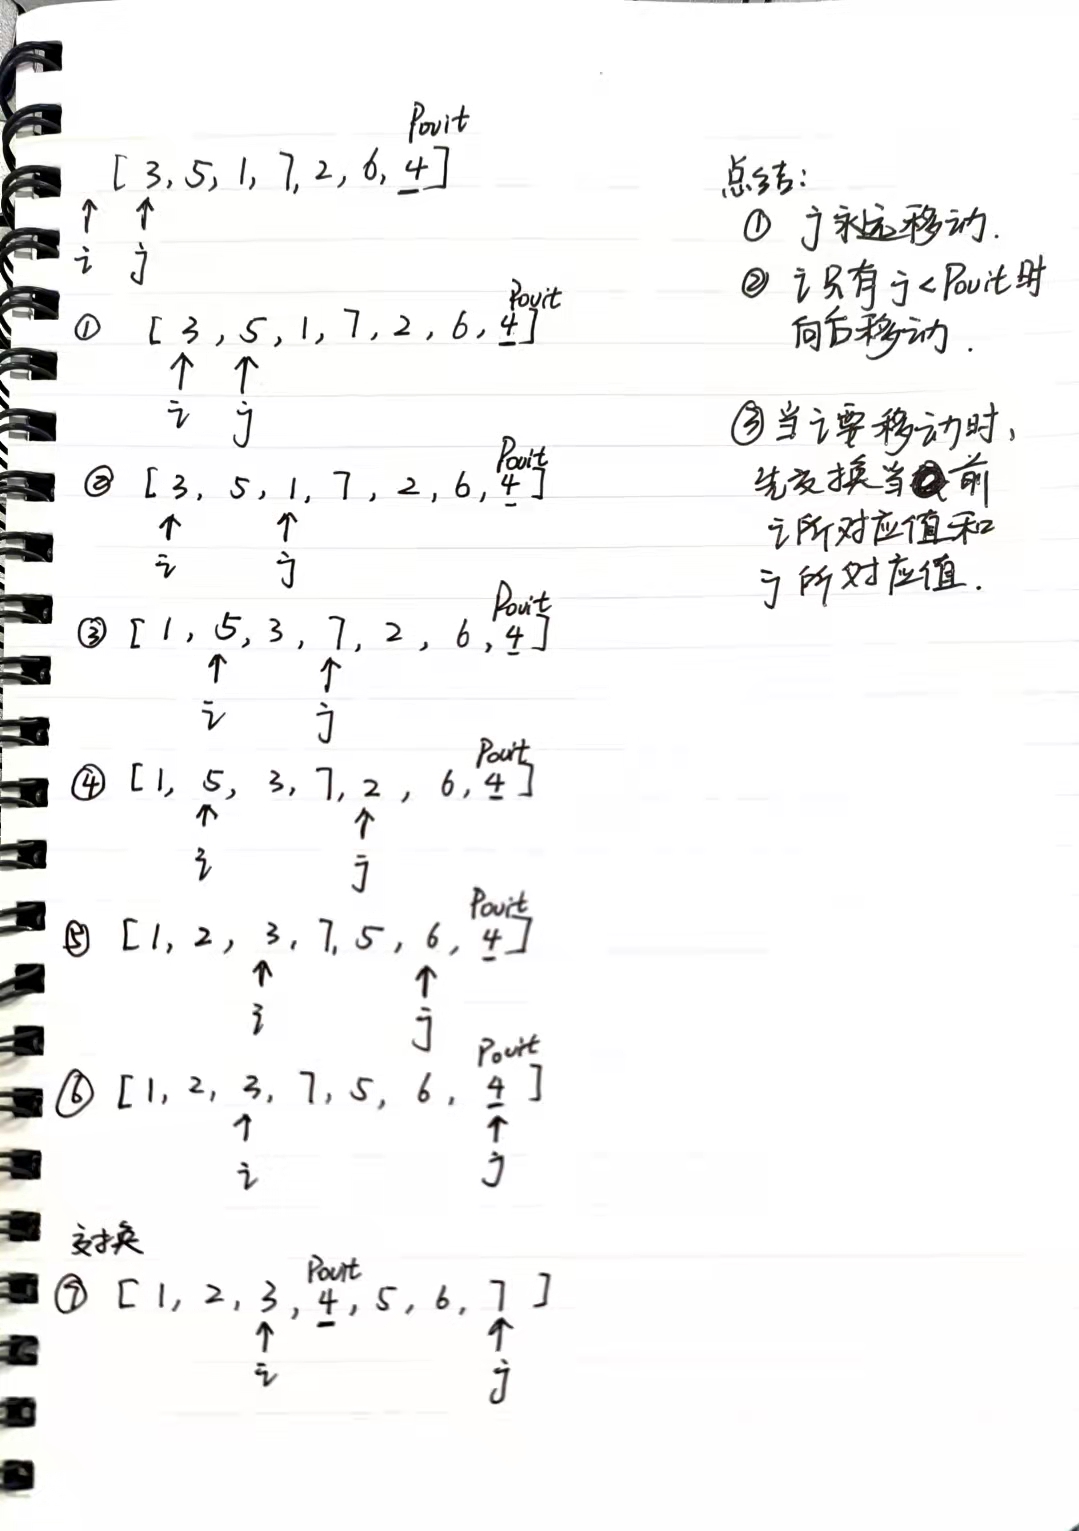 Povit
[ 3, 5, 1, 7, 2, 6, 4 ]
↑ ↑
i j
Povit
① [ 3, 5, 1, 7, 2, 6, 4 ]
↑ ↑
i j
Povit
② [ 3, 5, 1, 7, 2, 6, 4 ]
↑ ↑
i j
Povit
③ [ 1, 5, 3, 7, 2, 6, 4 ]
↑ ↑
i j
Povit
④ [ 1, 5, 3, 7, 2, 6, 4 ]
↑ ↑
i j
Povit
⑤ [ 1, 2, 3, 7, 5, 6, 4 ]
↑ ↑
i j
Povit
⑥ [ 1, 2, 3, 7, 5, 6, 4 ]
↑ ↑
i j
交换
Povit
⑦ [ 1, 2, 3, 4, 5, 6, 7 ]
↑ ↑
i j
总结:
① j永远移动.
② i只有j<Povit时
向后移动.
③当i要移动时,
先交换当前
i所对应值和
j所对应值.